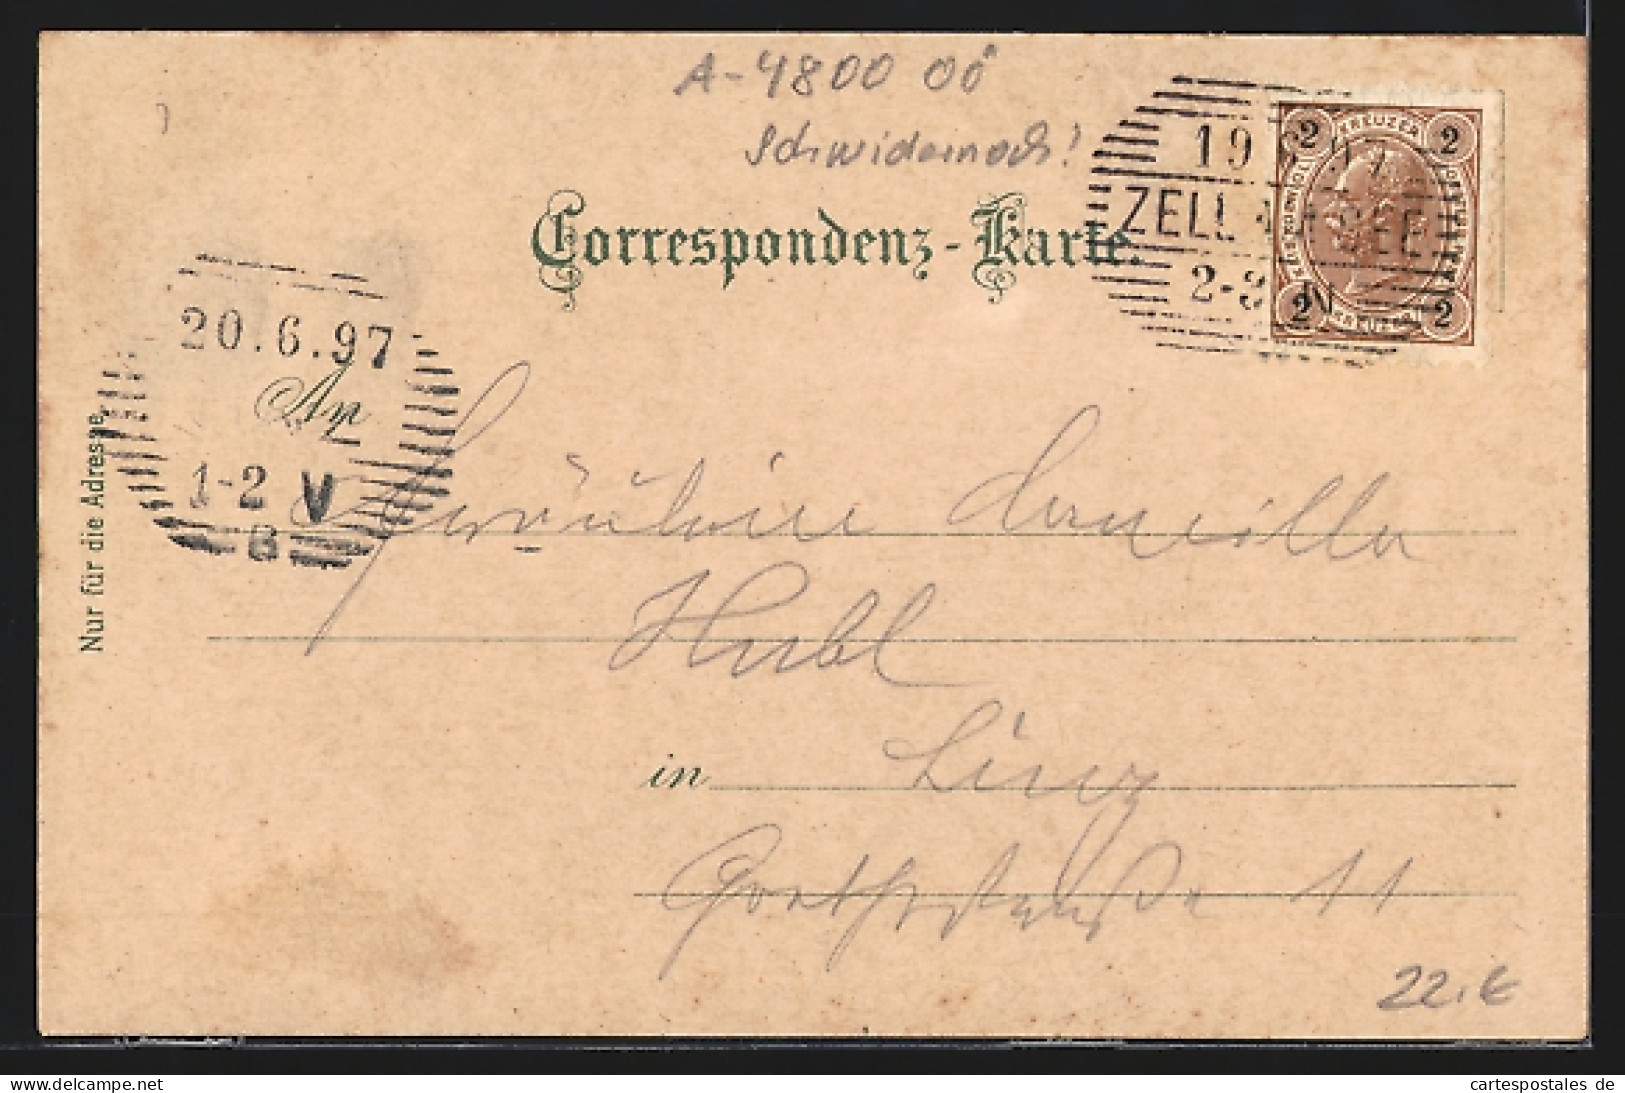 A-4800 OÖ
Correspondenz-Karte.
19 97
ZELL AM SEE
2-3 N
2 KREUZER 2
2 KREUZER 2
20.6.97
An
1-2 V
B
Nur für die Adresse.
Fräulein Camilla
Hubl
in Linz
Goethestraße 11
22.€
www.delcampe.net
cartespostales de